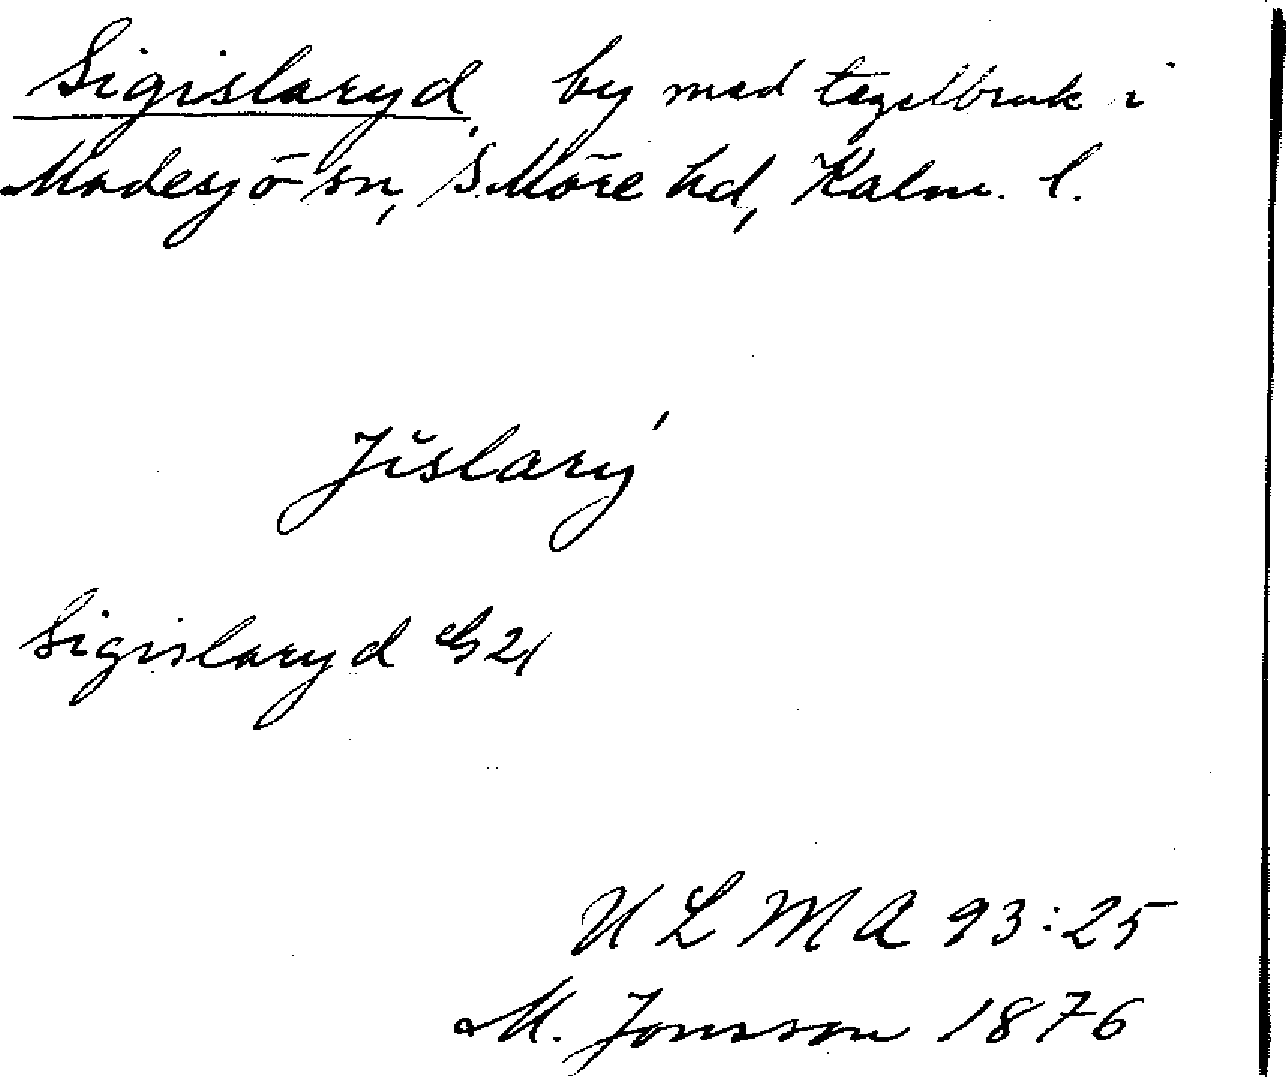 Sigislaryd, by med tegelbruk i
Madesjö sn, S. Möre hd, Kalm. l.
Jĭslarý
Sigislaryd GS 21
ULMA 93:25
M. Jonsson 1876